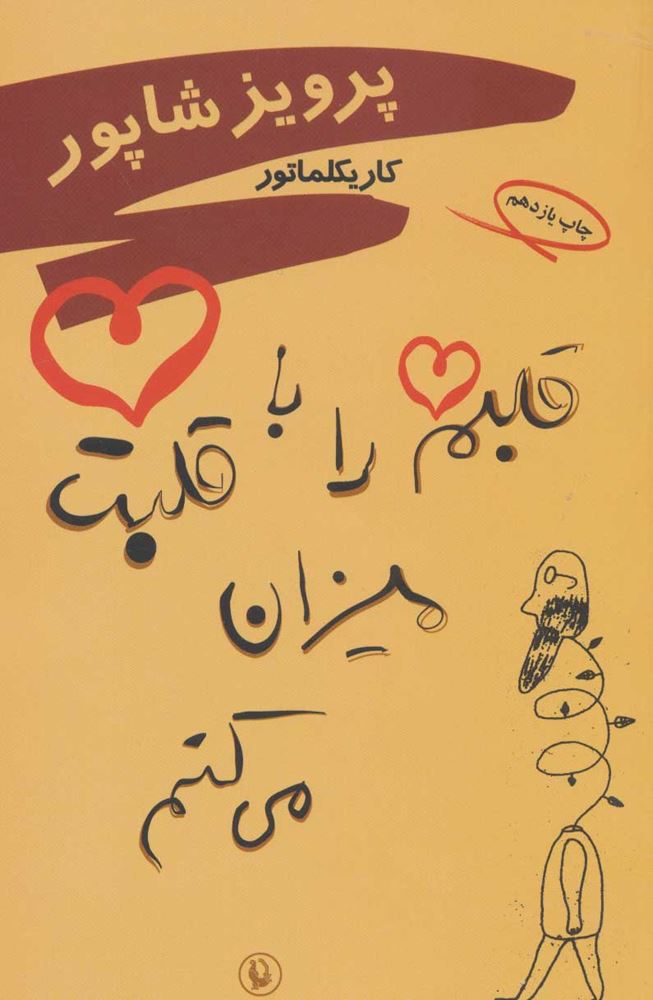 پرویز شاپور
کاریکلماتور
چاپ یازدهم
قلبم را با قلبت
میزان
می کنم